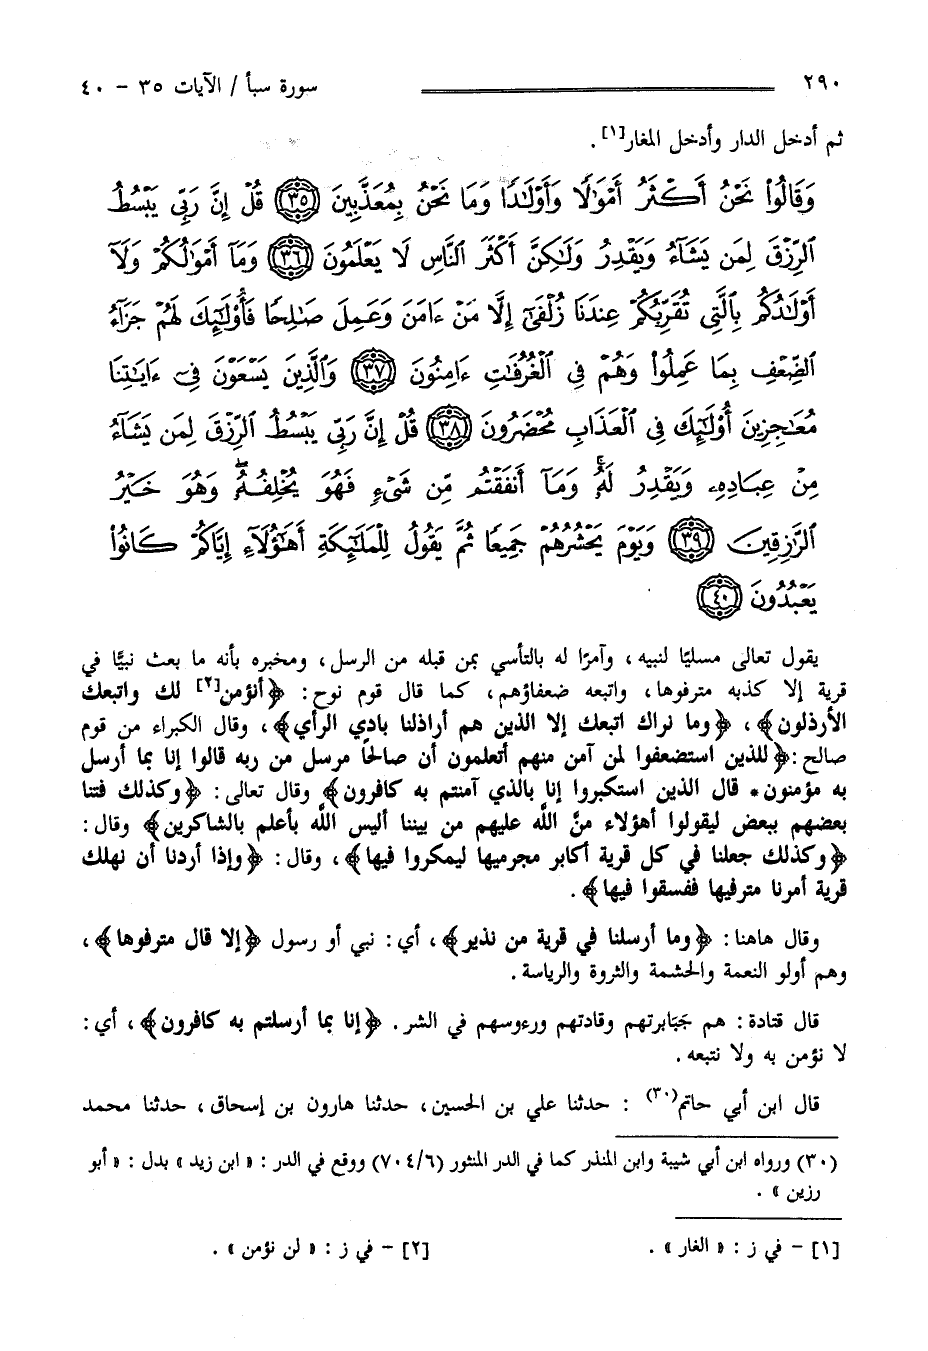 ٢٩٠ سورة سبأ / الآيات ٣٥ - ٤٠
ثم أدخل الدار وأدخل المغار[١].
وَقَالُوا۟ نَحْنُ أَكْثَرُ أَمْوَٰلًا وَأَوْلَٰدًا وَمَا نَحْنُ بِمُعَذَّبِينَ ﴿٣٥﴾ قُلْ إِنَّ رَبِّى يَبْسُطُ
ٱلرِّزْقَ لِمَن يَشَآءُ وَيَقْدِرُ وَلَٰكِنَّ أَكْثَرَ ٱلنَّاسِ لَا يَعْلَمُونَ ﴿٣٦﴾ وَمَآ أَمْوَٰلُكُمْ وَلَآ
أَوْلَٰدُكُم بِٱلَّتِى تُقَرِّبُكُمْ عِندَنَا زُلْفَىٰٓ إِلَّا مَنْ ءَامَنَ وَعَمِلَ صَٰلِحًا فَأُو۟لَٰٓئِكَ لَهُمْ جَزَآءُ
ٱلضِّعْفِ بِمَا عَمِلُوا۟ وَهُمْ فِى ٱلْغُرُفَٰتِ ءَامِنُونَ ﴿٣٧﴾ وَٱلَّذِينَ يَسْعَوْنَ فِىٓ ءَايَٰتِنَا
مُعَٰجِزِينَ أُو۟لَٰٓئِكَ فِى ٱلْعَذَابِ مُحْضَرُونَ ﴿٣٨﴾ قُلْ إِنَّ رَبِّى يَبْسُطُ ٱلرِّزْقَ لِمَن يَشَآءُ
مِنْ عِبَادِهِۦ وَيَقْدِرُ لَهُۥ ۚ وَمَآ أَنفَقْتُم مِّن شَىْءٍ فَهُوَ يُخْلِفُهُۥ ۖ وَهُوَ خَيْرُ
ٱلرَّٰزِقِينَ ﴿٣٩﴾ وَيَوْمَ يَحْشُرُهُمْ جَمِيعًا ثُمَّ يَقُولُ لِلْمَلَٰٓئِكَةِ أَهَٰٓؤُلَآءِ إِيَّاكُمْ كَانُوا۟
يَعْبُدُونَ ﴿٤٠﴾
يقول تعالى مسليًا لنبيه، وآمرًا له بالتأسي بمن قبله من الرسل، ومخبره بأنه ما بعث نبيًّا في
قرية إلا كذبه مترفوها، واتبعه ضعفاؤهم، كما قال قوم نوح: ﴿أنؤمن[٢] لك واتبعك
الأرذلون﴾، ﴿وما نراك اتبعك إلا الذين هم أراذلنا بادي الرأي﴾، وقال الكبراء من قوم
صالح: ﴿للذين استضعفوا لمن آمن منهم أتعلمون أن صالحًا مرسل من ربه قالوا إنا بما أرسل
به مؤمنون* قال الذين استكبروا إنا بالذي آمنتم به كافرون﴾ وقال تعالى: ﴿وكذلك فتنا
بعضهم ببعض ليقولوا أهؤلاء منَّ الله عليهم من بيننا أليس الله بأعلم بالشاكرين﴾ وقال:
﴿وكذلك جعلنا في كل قرية أكابر مجرميها ليمكروا فيها﴾، وقال: ﴿وإذا أردنا أن نهلك
قرية أمرنا مترفيها ففسقوا فيها﴾.
وقال هاهنا: ﴿وما أرسلنا في قرية من نذير﴾، أي: نبي أو رسول ﴿إلا قال مترفوها﴾،
وهم أولو النعمة والحشمة والثروة والرياسة.
قال قتادة: هم جَبَابرتهم وقادتهم ورءوسهم في الشر. ﴿إنا بما أرسلتم به كافرون﴾، أي:
لا نؤمن به ولا نتبعه.
قال ابن أبي حاتم(٣٠) : حدثنا علي بن الحسين، حدثنا هارون بن إسحاق، حدثنا محمد
(٣٠) ورواه ابن أبي شيبة وابن المنذر كما في الدر المنثور (٧٠٤/٦) ووقع في الدر: «ابن زيد» بدل: «أبو
رزين».
[١] - في ز: «الغار». [٢] - في ز: «لن نؤمن».